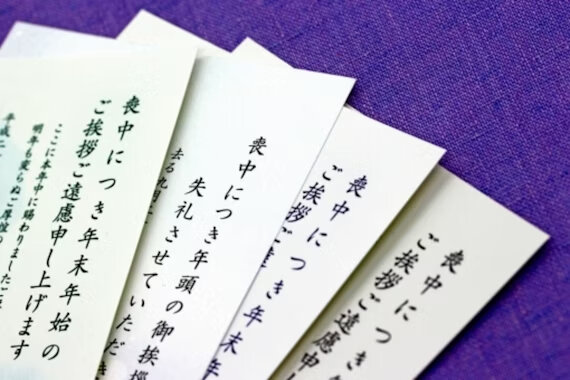 喪中につき年末年始の
ご挨拶ご遠慮申し上げます
ここに本年中に賜わりましたご
明年も変らぬご厚
平成二
喪中につき年頭の御挨拶
失礼させていただき
去る九月
喪中につき年末年
ご挨拶ご遠
喪中につき年
ご挨拶ご遠慮申し